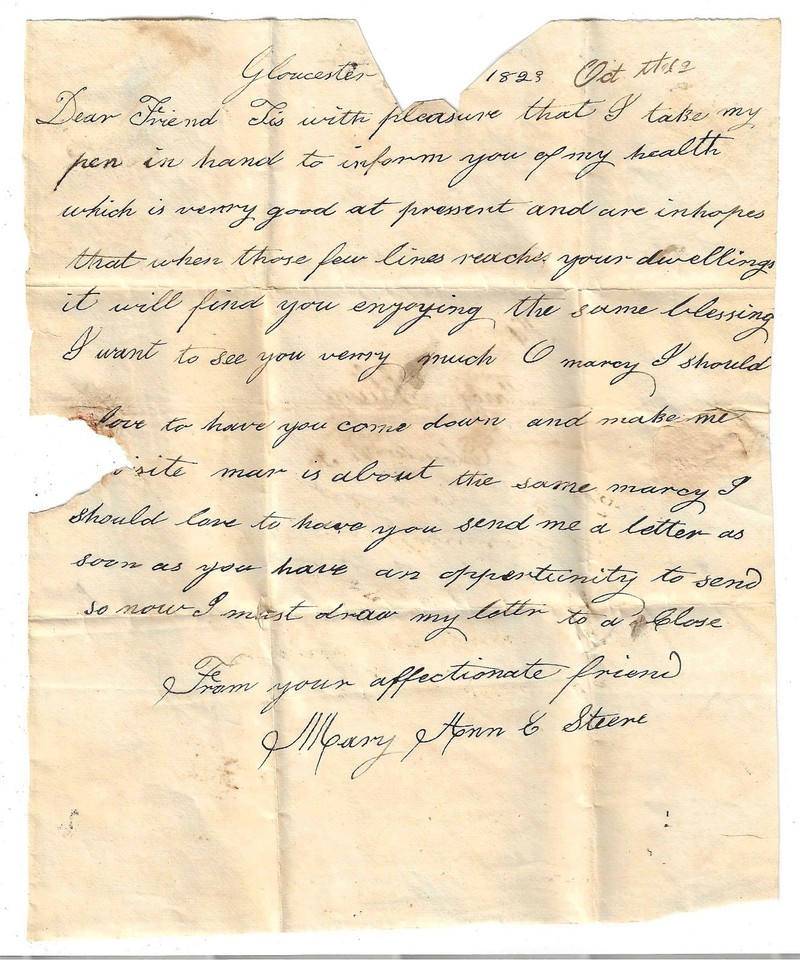 Gloucester 1823 Oct th 12
Dear Friend Tis with pleasure that I take my
pen in hand to inform you of my health
which is verry good at pressent and are inhopes
that when those few lines reache your dwellings
it will find you enjoying the same blessing
I want to see you verry much O marcy I should
love to have you come down and make me
visite mar is about the same marcy I
should love to have you send me a letter as
soon as you have an oppertunity to send
so now I must draw my lettr to a Close
From your affectionate friend
Mary Ann E Steere